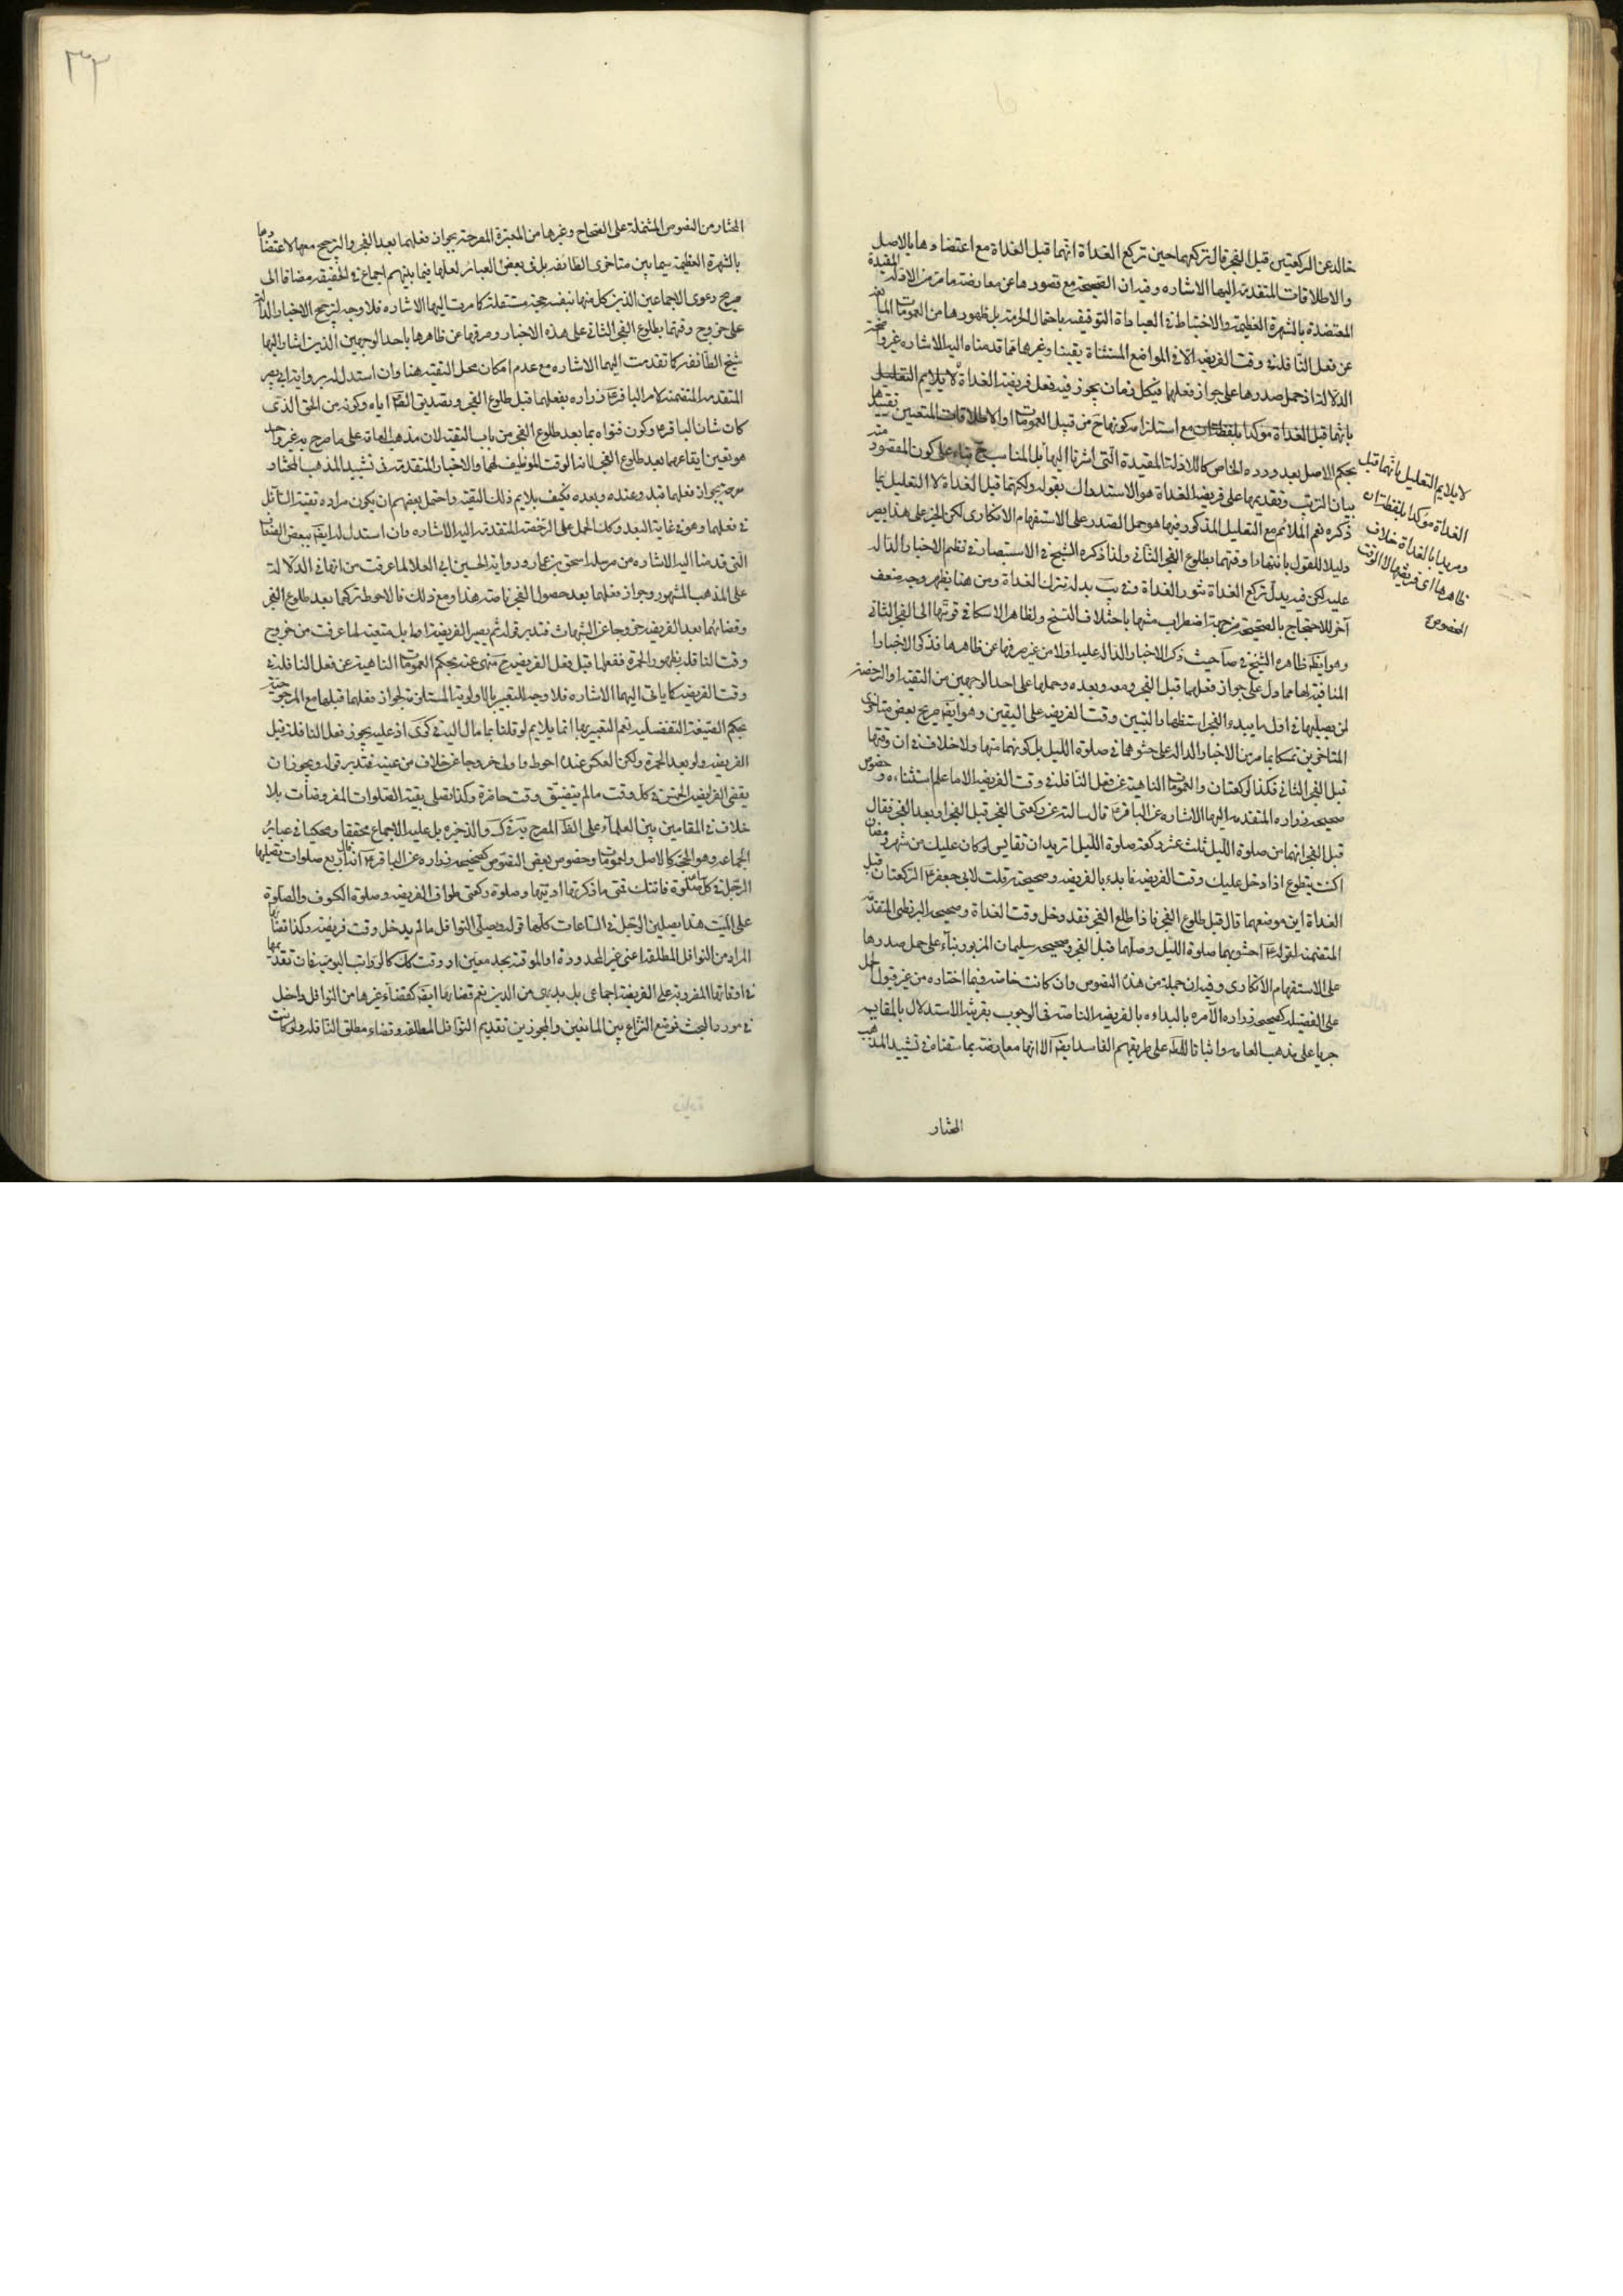 خالد عن الركعتين قبل الفجر قال تركعهما حين تركع الغداة انهما قبل الغداة مع اعتضادها بالاصل
والاطلاقات المتقدمة اليها الاشاره وفيه ان الصحيحة مع قصورها عن معارضة ما مر من الادلة المقيدة
المعتضدة بالشهرة العظيمة والاحتياط في العبادة التوقيفيه باحتمال الحرمة بل ظهورها من العمومات المانعه
عن فعل النافلة في وقت الفريضه الا في المواضع المستثناة يقينا وغيرها مما قدمناه اليه الاشاره غير واضحة
الدلالة اذ حمل صدرها على جواز فعلهما في كل زمان يجوز فيه فعل فريضة الغداة لا يلايم التعليل
بانهما قبل الغداة مؤكدا بلفظتان مع استلزامه كونها ح من قبيل العمومات او الاطلاقات المتعين تقييدها
بحكم الاصل بعد ورود الخاص كالادلة المقيدة التى اشرنا اليها بل المناسب ح بناء على كون المقصود منه
بيان الترتيب وتقديمها على فريضة الغداة هو الاستدراك بقوله ولكنهما قبل الغداة لا التعليل بما
ذكره نعم الملائم مع التعليل المذكور فيها هو حمل الصدر على الاستفهام الانكارى لكن الخبر على هذا يصير
دليلا للقول بانتهاء وقتهما بطلوع الفجر الثانى ولذا ذكره الشيخ فى الاستبصار فى نظم الاخبار الداله
عليه لكن فيه بدل تركع الغداة تنور الغداة وفى يب بدله تترك الغداة ومن هنا يظهر وجه ضعف
آخر للاحتجاج بالصحيحة من جهة اضطراب متنها باختلاف النسخ ولظاهر الاسكافى قوتها الى الفجر الثانى
وهو ايضا ظاهر الشيخ فى صا حيث ذكر الاخبار الداله عليه اولا من غير صرفها عن ظاهرها فذكر الاخبار
المنافية لها مما دل على جواز فعلهما قبل الفجر ومعه وبعده وحملها على احد الوجهين من التقية او الرخصة
لمن يصليهما فى اول ما يبدء الفجر استظهارا لتبين وقت الفريضه على اليقين وهو ايضا صريح بعض متاخرى
المتاخرين تمسكا بما مر من الاخبار الداله على حشوهما فى صلوة الليل بل كونهما منها ولا خلاف فى ان وقتها
قبل الفجر الثانى فكذا الركعتان والعمومات الناهية عن فعل النافلة فى وقت الفريضه الا ما علم استثناءه وخصوص
صحيحه زراره المتقدمه اليها الاشاره عن الباقر ع قال سالته عن ركعتى الفجر قبل الفجر او بعد الفجر فقال
قبل الفجر انهما من صلوة الليل ثلث عشر ركعة صلوة الليل اتريد ان تقايس لو كان عليك من شهر رمضان
اكنت تتطوع اذا دخل عليك وقت الفريضه فابدء بالفريضه وصحيحته قلت لابى جعفر ع الركعتان قبل
الغداة اين موضعهما قال قبل طلوع الفجر فاذا طلع الفجر فقد دخل وقت الغداة وصحيحه البزنطى المتقدمه
المتضمنه لقوله ع احشو بهما صلوة الليل وصلهما قبل الفجر وصحيحه سليمان المزبور بناء على حمل صدرها
على الاستفهام الانكارى وفيه ان جملة من هذه النصوص وان كانت خاصة وفيما اختاره من غير قبول الحمل
على الفضيله كصحيحه زراره الآمره بالبداءه بالفريضه الناصة فى الوجوب بقرينة الاستدلال بالمقايسه
جريا على مذهب العامه واثباتا للحكم على طريقهم الفاسد ايضا الا انها معارضة بما سقناه فى تشييد المذهب
المختار
لا يلايم التعليل بانهما قبل
الغداة مؤكدا بلفظتان
ومريدا بالغداة خلاف
ظاهرها اى فريضتها لا الوقت
المخصوص
٣٣
المختار من النصوص المشتملة على الصحاح وغيرها من المعتبرة المصرحة بجواز فعلهما بعد الفجر والترجيح معها لاعتضادها
بالشهرة العظيمة سيما بين متاخرى الطائفه بل فى بعض العبائر لعلها فيما بينهم اجماع فى الحقيقة مضافا الى
صريح دعوى الاجماعين الذين كل منهما بنفسه حجة مستقلة كما مرت اليها الاشاره فلا وجه لترجيح الاخبار الدالة
على خروج وقتهما بطلوع الفجر الثانى على هذه الاخبار وصرفها عن ظاهرها باحد الوجهين الذين اشار اليهما
شيخ الطائفه كما تقدمت اليهما الاشاره مع عدم امكان محمل التقيه هنا وان استدل له برواية ابى بصير
المتقدمه المتضمنة لامر الباقر ع زراره بفعلهما قبل طلوع الفجر وتصديق الصادق اياه وكونه من الحق الذى
كان شان الباقر ع وكون فتواه بما بعد طلوع الفجر من باب التقيه لان مذهب العامة على ما صرح به غير واحد
هو تعين ايقاعهما بعد طلوع الفجر لانه الوقت الموظف لهما والاخبار المتقدمة فى تشييد المذهب المختار
صرحة بجواز فعلهما قبله وعنده وبعده فكيف يلايم ذلك التقية واحتمل بعضهم ان يكون مراده تقية السائل
فى فعلهما وهو فى غاية البعد وكذا الحمل على الرخصة المتقدمه اليه الاشاره وان استدل له ايضا ببعض الضعاف
التى قدمنا اليه الاشاره من مرسلة اسحق بن عمار ورواية الحسين ابى العلا لما عرفت من انها فى الدلالة
على المذهب المشهور وجواز فعلهما بعد حصول الفجر ناصة هذا ومع ذلك فالاحوط تركهما بعد طلوع الفجر
وقضائهما بعد الفريضه خروجا عن الشبهات فتدبر قوله ثم يصير الفريضة اولى بل متعينة لما عرفت من خروج
وقت النافله بظهور الحمرة ففعلها قبل فعل الفريضه ح منهى عنه بحكم العمومات الناهية عن فعل النافلة فى
وقت الفريضه كما ياتى اليها الاشاره فلا وجه للتعبير بالاولوية المستلزمة لجواز فعلهما قبلها مع المرجوحية
بحكم الصيغة التفضيليه نعم التعبير بها انما يلايم لو قلنا بما مال اليه فى كرى اذ عليه يجوز فعل النافلة قبل
الفريضه ولو بعد الحمرة ولكن العكس عنده احوط واولى خروجا عن خلاف من عينه فتدبر قوله ويجوز ان
يقضى الفرايض الخمس فى كل وقت ما لم يتضيق وقت حاضرة وكذا يصلى بقية الصلوات المفروضات بلا
خلاف فى المقامين بين العلماء على الظاهر المصرح به فى ك والذخيره بل عليه الاجماع محققا ومحكيا فى عبائر
الجماعه وهو الحجة كالاصل والعمومات وخصوص بعض النصوص كصحيحه زراره عن الباقر ع انه قال اربع صلوات يصليها
الرجل فى كل ساعة صلوة فاتتك فمتى ما ذكرتها اديتها وصلوة ركعتى طواف الفريضه وصلوة الكسوف والصلوة
على الميت هذه يصليهن الرجل فى الساعات كلها قوله ويصلى النوافل ما لم يدخل وقت فريضة وكذا قضائها
المراد من النوافل المطلقة اعنى غير المحدودة او الموقتة بحد معين او وقت كذلك كالرواتب اليومية فان تقديمها
فى اوقاتها المضروبة على الفريضة اجماعى بل بديهى من الدين نعم قضائها ايضا كقضاء غيرها من النوافل داخل
فى مورد البحث فموضع النزاع بين المانعين والمجوزين تقديم النوافل المطلقه وقضاء مطلق النافله ولو كانت